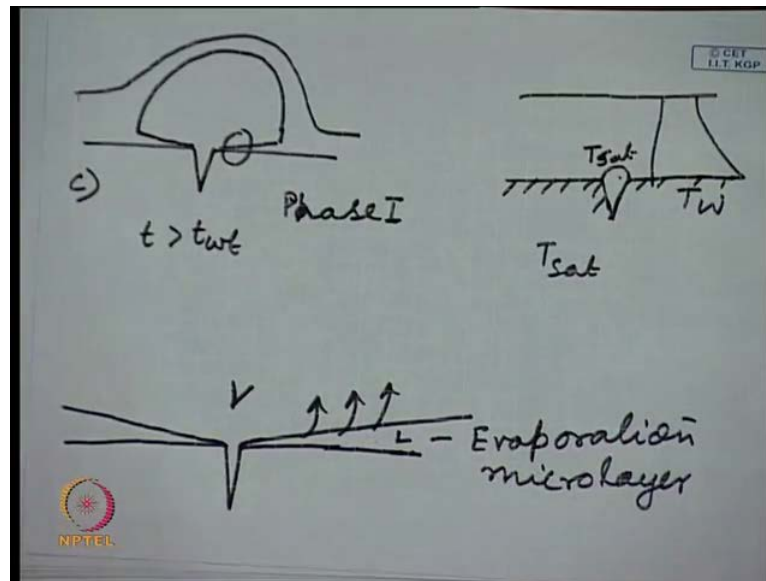 © CET
I.I.T. KGP
Tsat
c)
t > twt
Phase I
Tw
Tsat
V
L - Evaporation
microlayer
NPTEL